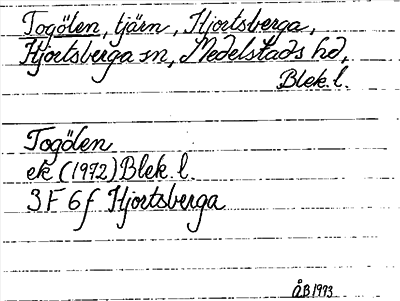 Togölen, tjärn, Hjortsberga,
Hjortsberga sn, Medelstads hd,
Blek. l.
Togölen
ek (1972) Blek. l.
3 F 6 f Hjortsberga
ÅB 1973